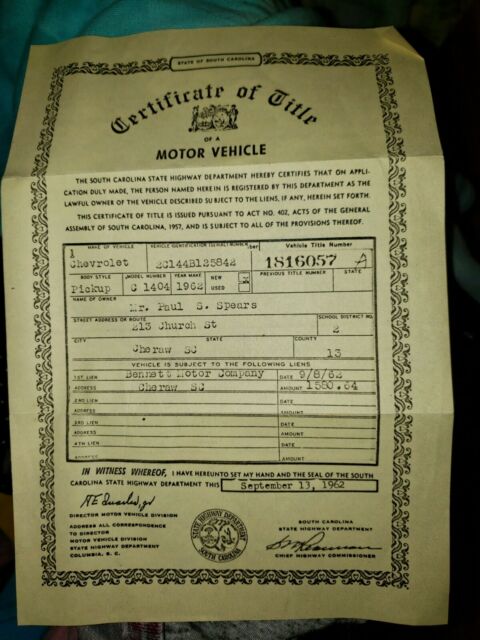 STATE OF SOUTH CAROLINA
Certificate of Title
OF A
MOTOR VEHICLE
THE SOUTH CAROLINA STATE HIGHWAY DEPARTMENT HEREBY CERTIFIES THAT ON APPLI-
CATION DULY MADE, THE PERSON NAMED HEREIN IS REGISTERED BY THIS DEPARTMENT AS THE
LAWFUL OWNER OF THE VEHICLE DESCRIBED SUBJECT TO THE LIENS, IF ANY, HEREIN SET FORTH.
THIS CERTIFICATE OF TITLE IS ISSUED PURSUANT TO ACT NO. 402, ACTS OF THE GENERAL
ASSEMBLY OF SOUTH CAROLINA, 1957, AND IS SUBJECT TO ALL OF THE PROVISIONS THEREOF.
MAKE OF VEHICLE VEHICLE IDENTIFICATION NUMBER Vehicle Title Number
1
Chevrolet 2C144B125842 1816057 A
BODY STYLE MODEL NUMBER YEAR MAKE NEW PREVIOUS TITLE NUMBER STATE
Pickup C 1404 1962 USED
NAME OF OWNER
Mr. Paul S. Spears
STREET ADDRESS OR ROUTE SCHOOL DISTRICT NO.
213 Church St 2
CITY STATE COUNTY
Cheraw SC 13
VEHICLE IS SUBJECT TO THE FOLLOWING LIENS
1ST. LIEN Bennett Motor Company DATE 9/8/62
ADDRESS Cheraw SC AMOUNT 1580.64
2ND LIEN DATE
ADDRESS AMOUNT
3RD LIEN DATE
ADDRESS AMOUNT
4TH LIEN DATE
ADDRESS AMOUNT
IN WITNESS WHEREOF, I HAVE HEREUNTO SET MY HAND AND THE SEAL OF THE SOUTH
CAROLINA STATE HIGHWAY DEPARTMENT THIS September 13, 1962
DIRECTOR MOTOR VEHICLE DIVISION
ADDRESS ALL CORRESPONDENCE
TO DIRECTOR
MOTOR VEHICLE DIVISION
STATE HIGHWAY DEPARTMENT
COLUMBIA, S. C.
STATE HIGHWAY DEPARTMENT
SOUTH CAROLINA
SOUTH CAROLINA
STATE HIGHWAY DEPARTMENT
CHIEF HIGHWAY COMMISSIONER